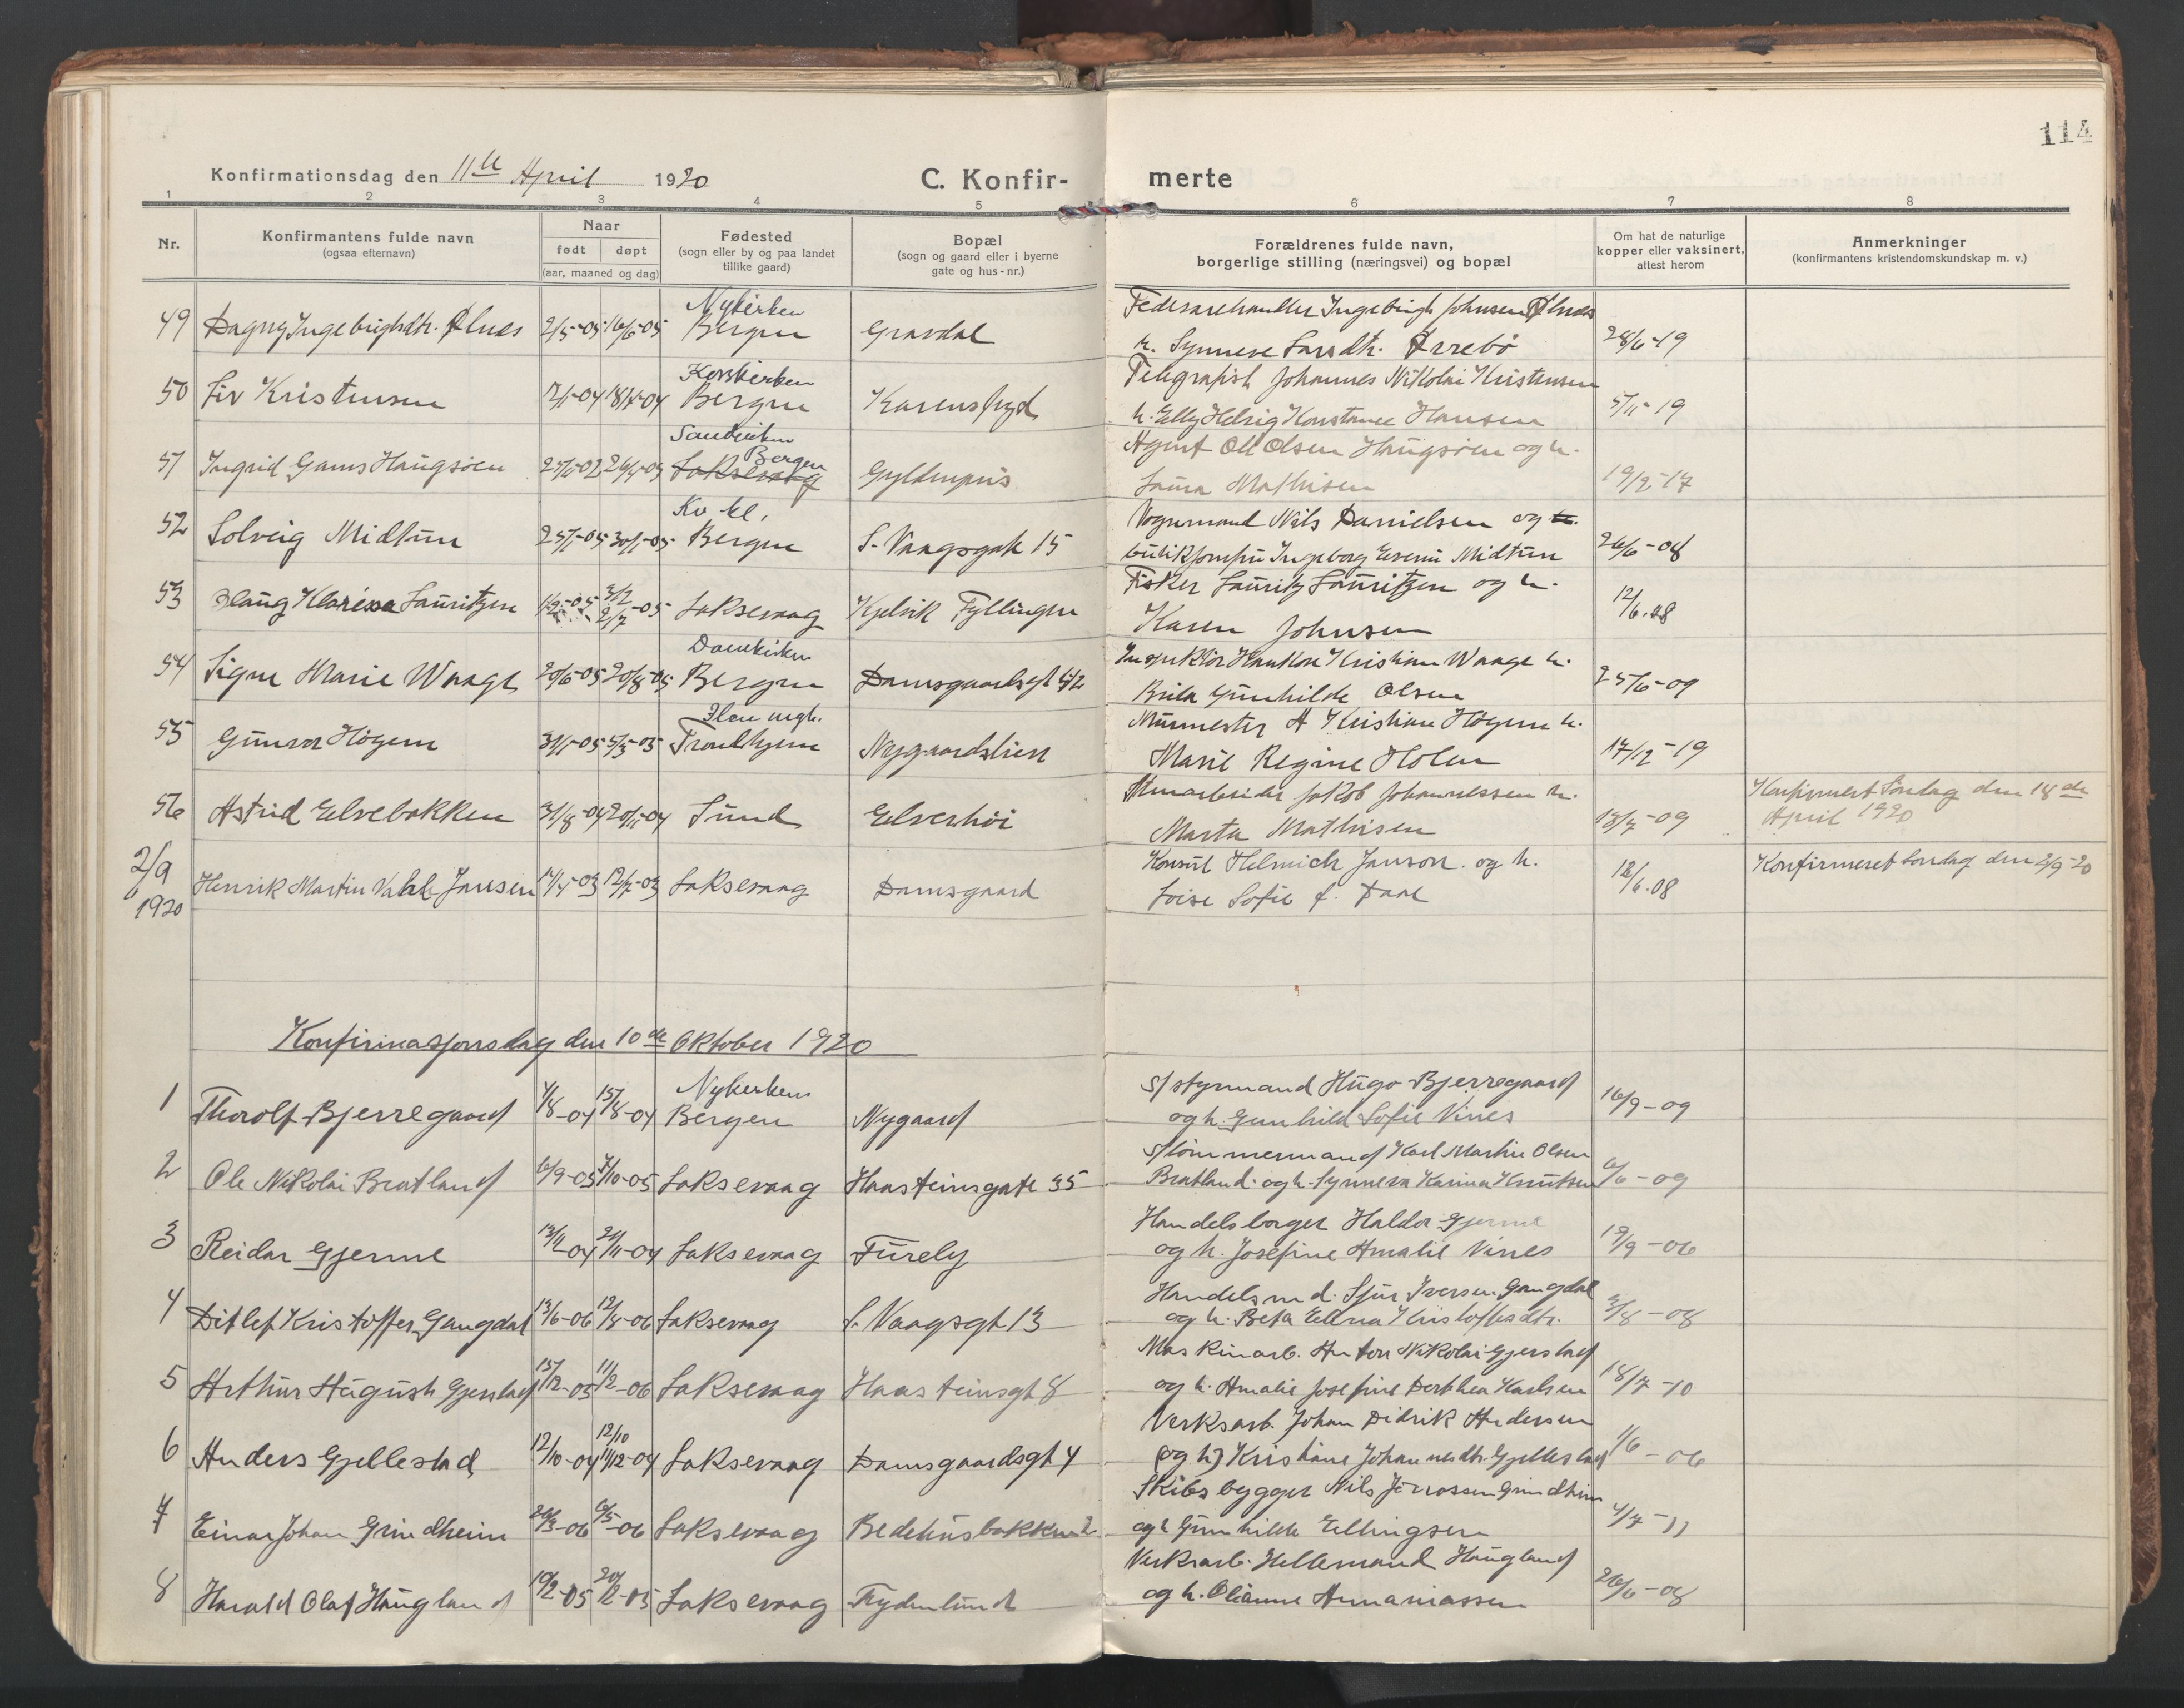 114
Konfirmationsdag den 11te April 1920
C. Konfirmerte
1 2 3 4 5 6 7 8
Nr.
Konfirmantens fulde navn
(ogsaa efternavn)
Naar
født døpt
(aar, maaned og dag)
Fødested
(sogn eller by og paa landet
tillike gaard)
Bopæl
(sogn og gaard eller i byerne
gate og hus-nr.)
Forældrenes fulde navn,
borgerlige stilling (næringsvei) og bopæl
Om hat de naturlige
kopper eller vaksinert,
attest herom
Anmerkninger
(konfirmantens kristendomskundskap m. v.)
49 Dagny Ingebrigtsdtr. 2/5-05 16/6-05 Nykirken Bergen Gravdal
Ingebrigt Johnsen
h. Synneve Larsdtr. 28/6-19
50 Liv Kristensen Korskirken Bergen
Telegrafist Johannes Nikolai Kristensen
h. Elly Helvig Konstance Hansen 5/11-19
51 Ingrid Gams Haugsøen Sandviken Bergen Laksevaag Gyldenpris
Agent Ole Olsen Haugsøen og h.
Laura Mathisen 19/2-17
52 Solveig Midttun Kv. kl. Bergen S. Vaagsgate 15
Vognmand Nils Danielsen og h.
Ingeborg Midttun 26/6-08
53 Klarissa Lauritzen Laksevaag Kjelvik Fyllingen
Fisker Lauritz Lauritzen og h.
Karen Johnsen 12/6.08
54 Signe Marie Waage 20/6-05 20/8-05 Domkirken Bergen
Inspektør Haakon Kristian Waage h.
Brita Gunhilde Olsen 25/6-09
55 Gunvor Høgem Ilen mgh. Trondhjem Nygaardslien
Murmester A Kristian Høgem h.
Marie Regine Holen 17/12-19
56 Astrid Elvebakken 31/8-04 Sund Elverhøi
Jakob Johannessen h.
Marta Mathisen 13/7-09
Konfirmert Søndag den 18de
April 1920
2/9 1920 Henrik Martin Vahl Janson Laksevaag Damsgaard
Konsul Helmich Janson og h.
Loise Sofie f. Daae 12/6.08
Konfirmeret Søndag den 2/9-20
Konfirmasjonsdag den 10de Oktober 1920
1 Thorolf Bjerregaard 4/8-04 15/8-04 Nykirken Bergen Nygaard
S/styrmand Hugo Bjerregaard
og h. Gunhild Sofie Vines 16/9-09
2 Ole Nikolai Bratland 6/9-05 7/10-05 Laksevaag Haasteinsgate 35
S/tømmermand Karl Martin Olsen
Bratland og h. Synneva Karina Knutsen 6/6-09
3 Reidar Gjerme 13/11-04 Laksevaag Furely
Handelsborger Haldor Gjerme
og h. Josefine Amalie Vines 19/9-06
4 Ditlef Kristoffer Gangdal 13/6-06 12/8-06 Laksevaag S. Vaagsgt 13
Handelsmd. Sjur Iversen Gangdal
og h. Berta Elena Kristoffersdtr. 3/8-08
5 Arthur August Gjerstad 15/12-05 11/2-06 Laksevaag Haasteinsgt 8
Maskinarb. Anton Nikolai Gjerstad
og h. Amalie Josefine Dorthea Karlsen 18/7-10
6 Anders Gjellestad 12/10-04 12/10 11/12-04 Laksevaag Damsgaardsgt 4
Verksarb. Johan Didrik Andersen
(og h) Kristiane Johannesdtr. Gjellestad 1/6-06
7 Einar Johan Grindheim 6/5-06 Laksevaag Bedehusbakken 2
Skibsbygger Nils Grindheim
og h Gunhilde Ellingsen 4/7-11
8 Harald Olaf Haugland 10/2-05 Laksevaag Frydenlund
Verksarb. Hellemand Haugland
og h. Olianne Ananiassen 26/6-08